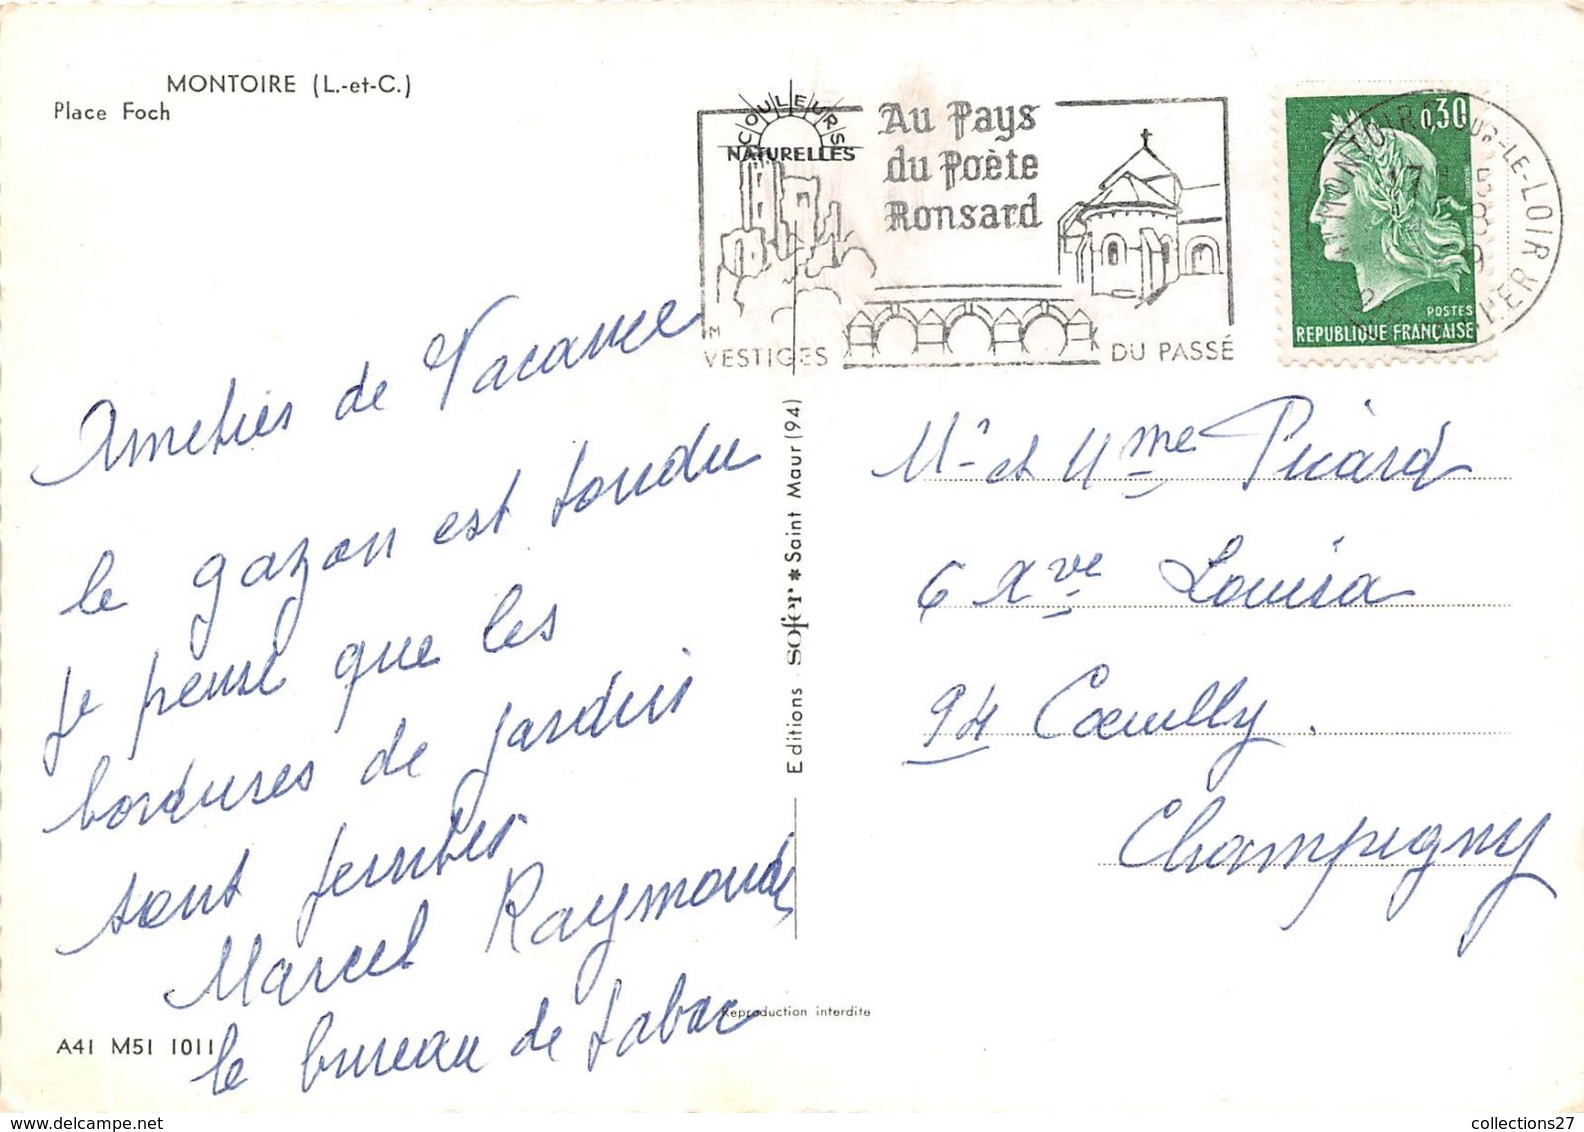 MONTOIRE (L.-et-C.)
Place Foch
COULEURS
NATURELLES
Au Pays
du Poète
Ronsard
M
VESTIGES DU PASSÉ
0,30
POSTES
REPUBLIQUE FRANÇAISE
MONTOIRE SUR-LE-LOIR
CHER
Ametiés de Vacance
le gazon est tondu
Je pense que les
bordures de jardins
sont
Marcel Raymonde
le bureau de tabac
Mr et Mme Picard
6 Ave Louisa
94 Cœuilly.
Champigny
Editions sofer * Saint Maur (94)
Reproduction interdite
A41 M51 1011
collections27